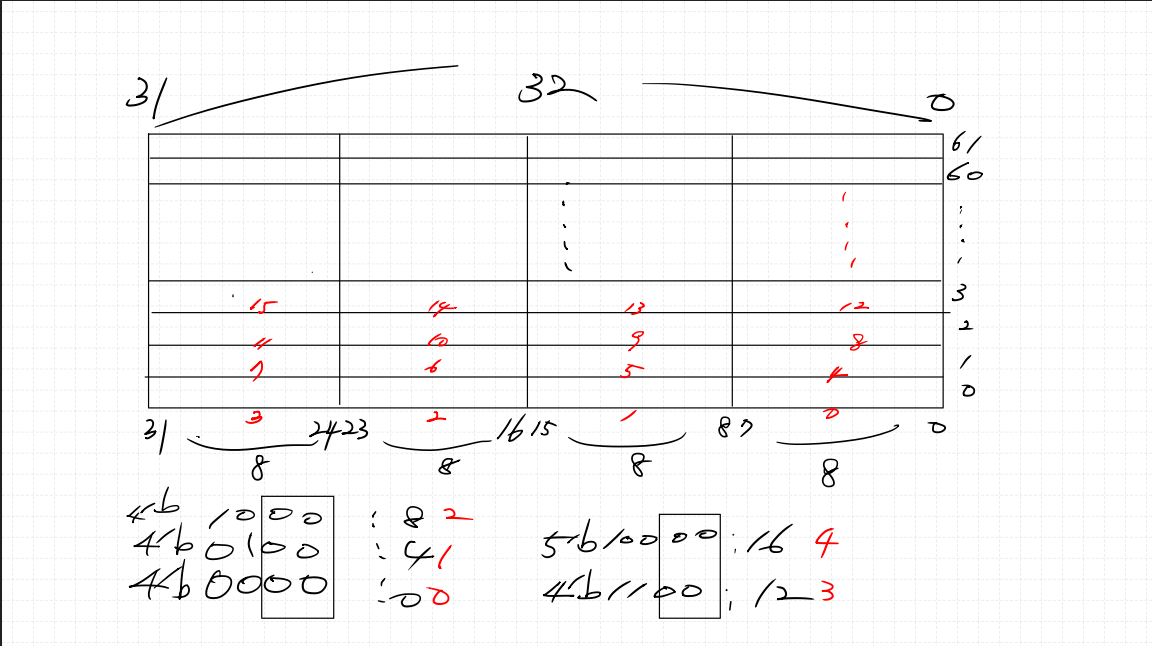 31 32 0
61
60
3
15 14 13 12
2
11 10 9 8
1
7 6 5 4
0
3 2 1 0
31 24 23 16 15 8 7 0
8 8 8 8
4'b 1000 : 8 2
4'b 0100 : 4 1
4'b 0000 : 0 0
5'b 10000 : 16 4
4'b 1100 : 12 3